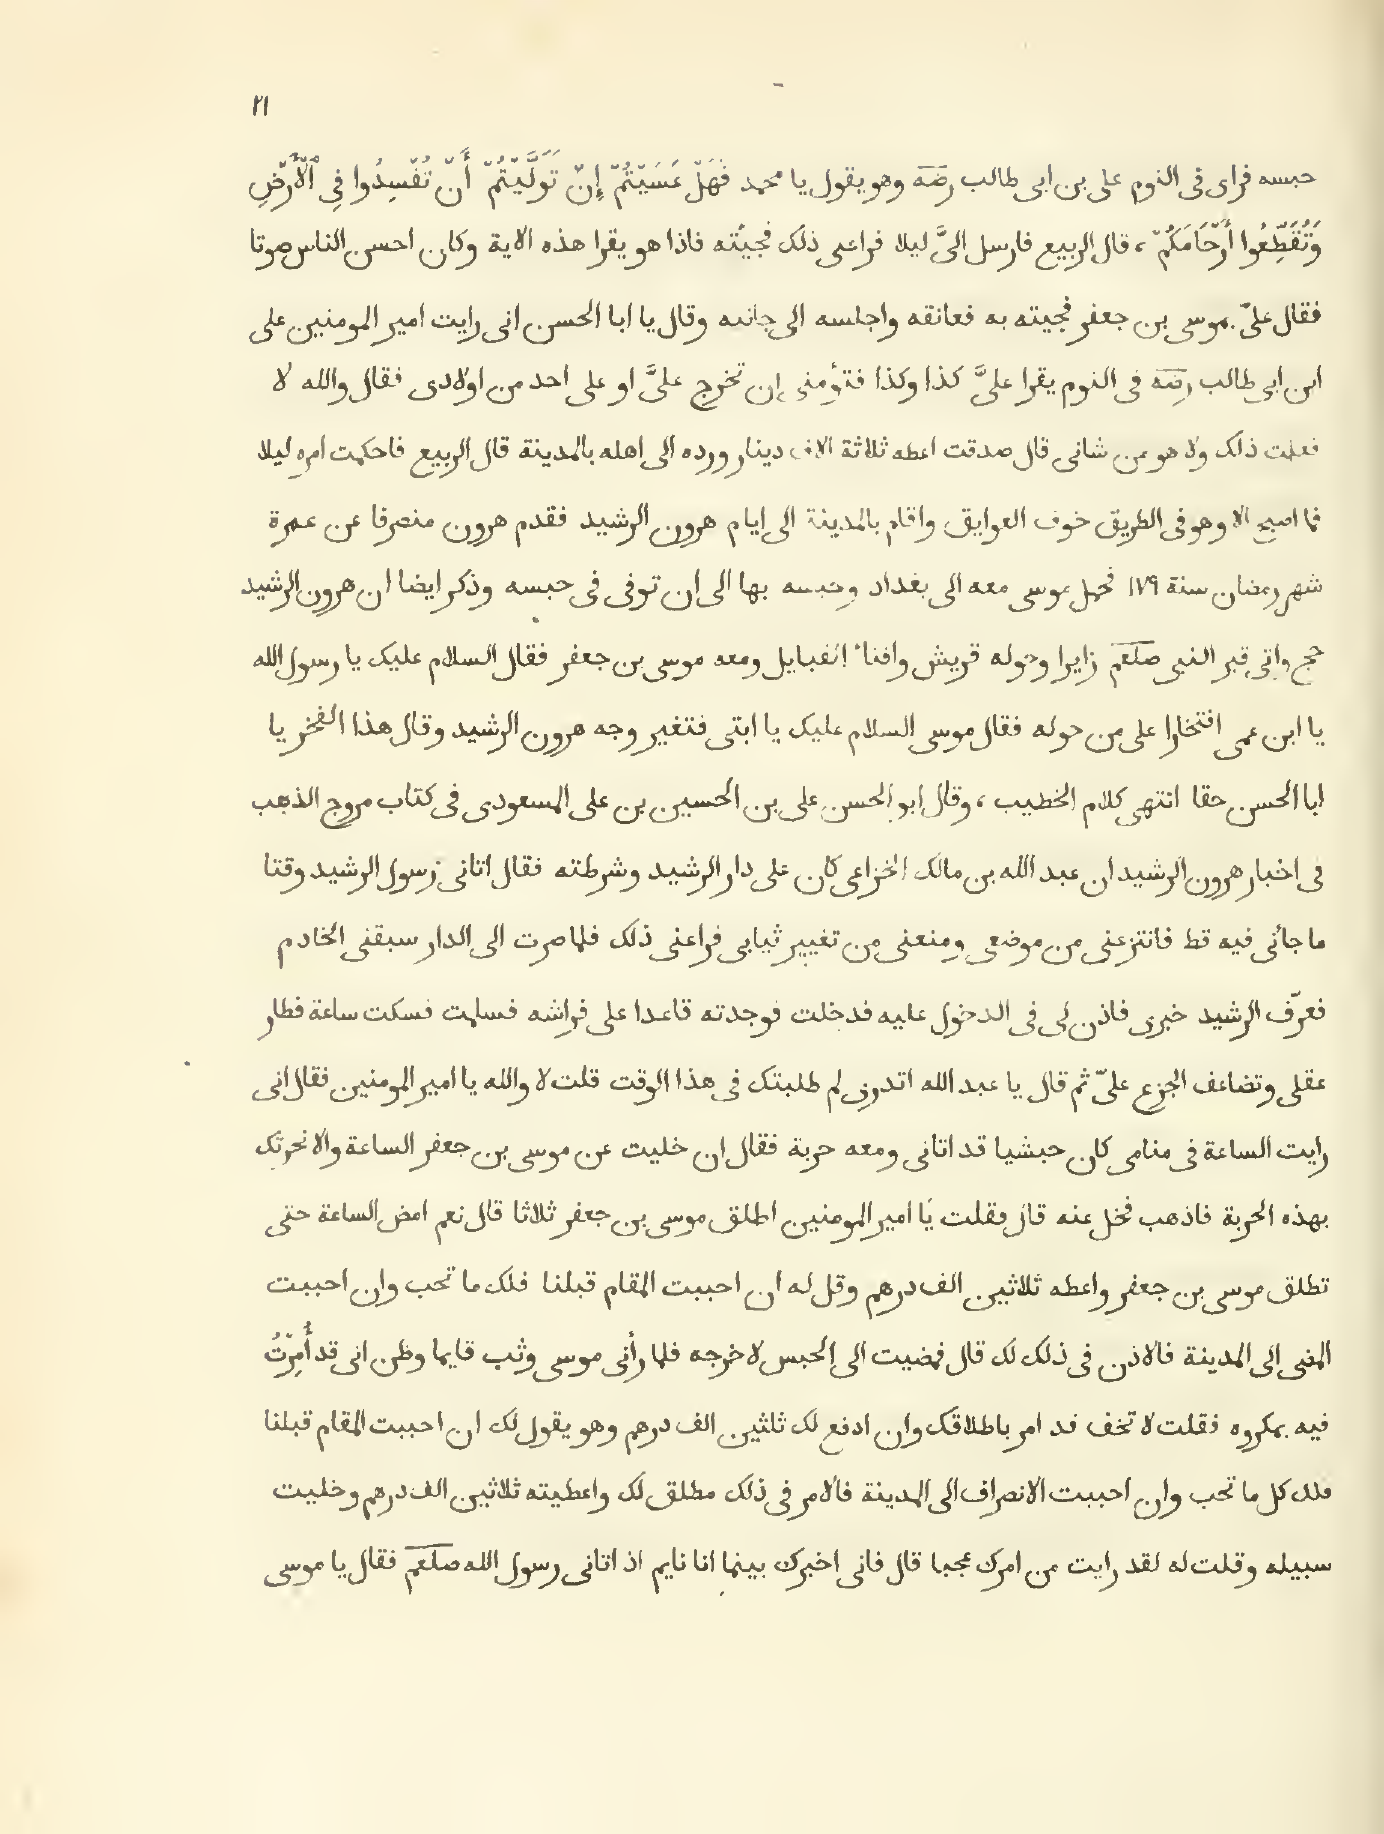 ٢١
حبسه فراى فى النوم على بن ابى طالب رضه وهو يقول يا محمد فَهَلْ عَسَيْتُمْ إِنْ تَوَلَّيْتُمْ أَنْ تُفْسِدُوا فِى ٱلْأَرْضِ
وَتُقَطِّعُوا أَرْحَامَكُمْ ، قال الربيع فارسل الىَّ ليلا فراعى ذلك فجيئته فاذا هو يقرا هذه الاية وكان احسن الناس صوتا
فقال علىّ بموسى بن جعفر فجيته به فعانقه واجلسه الى جانبه وقال يا ابا الحسن انى رايت امير المومنين على
ابن ابى طالب رضه فى النوم يقرا علىَّ كذا وكذا فتؤمنى ان تخرج علىَّ او على احد من اولادى فقال والله لا
فعلت ذلك ولا هو من شانى قال صدقت اعطه ثلاثة الاف دينار ورده الى اهله بالمدينة قال الربيع فاحكمت امره ليلا
فما اصبح الا وهو فى الطريق خوف العوايق واقام بالمدينة الى ايام هرون الرشيد فقدم هرون منصرفا عن عمرة
شهر رمضان سنة ١٧٩ فحمل موسى معه الى بغداد وحبسه بها الى ان توفى فى حبسه وذكر ايضا ان هرون الرشيد
حج واتى قبر النبى صلعم زايرا وحوله قريش وافناء القبايل ومعه موسى بن جعفر فقال السلام عليك يا رسول الله
يا ابن عمى افتخارا على من حوله فقال موسى السلام عليك يا ابتى فتغير وجه هرون الرشيد وقال هذا الفخر يا
ابا الحسن حقا انتهى كلام الخطيب ، وقال ابو الحسن على بن الحسين بن على المسعودى فى كتاب مروج الذهب
فى اخبار هرون الرشيد ان عبد الله بن مالك الخزاعى كان على دار الرشيد وشرطته فقال اتانى رسول الرشيد وقتا
ما جاٸنى فيه قط فانتزعنى من موضعى ومنعنى من تغيير ثيابى فراعنى ذلك فلما صرت الى الدار سبقنى الخادم
فعرّف الرشيد خبرى فاذن لى فى الدخول عليه فدخلت فوجدته قاعدا على فراشه فسلمت فسكت ساعة فطار
عقلى وتضاعف الجزع علىّ ثم قال يا عبد الله اتدرى لم طلبتك فى هذا الوقت قلت لا والله يا امير المومنين فقال انى
رايت الساعة فى منامى كان حبشيا قد اتانى ومعه حربة فقال ان خليت عن موسى بن جعفر الساعة والا نحرتك
بهذه الحربة فاذهب فخل عنه قال فقلت يا امير المومنين اطلق موسى بن جعفر ثلاثا قال نعم امض الساعة حتى
تطلق موسى بن جعفر واعطه ثلاثين الف درهم وقل له ان احببت المقام قبلنا فلك ما تحب وان احببت
المضى الى المدينة فالاذن فى ذلك لك قال فمضيت الى الحبس لاخرجه فلما رأنى موسى وثب قايما وظن انى قد أُمِرْتُ
فيه بمكروه فقلت لا تخف قد امر باطلاقك وان ادفع لك ثلثين الف درهم وهو يقول لك ان احببت المقام قبلنا
فلك كل ما تحب وان احببت الانصراف الى المدينة فالامر فى ذلك مطلق لك واعطيته ثلاثين الف درهم وخليت
سبيله وقلت له لقد رايت من امرك عجبا قال فانى اخبرك بينما انا نايم اذ اتانى رسول الله صلعم فقال يا موسى